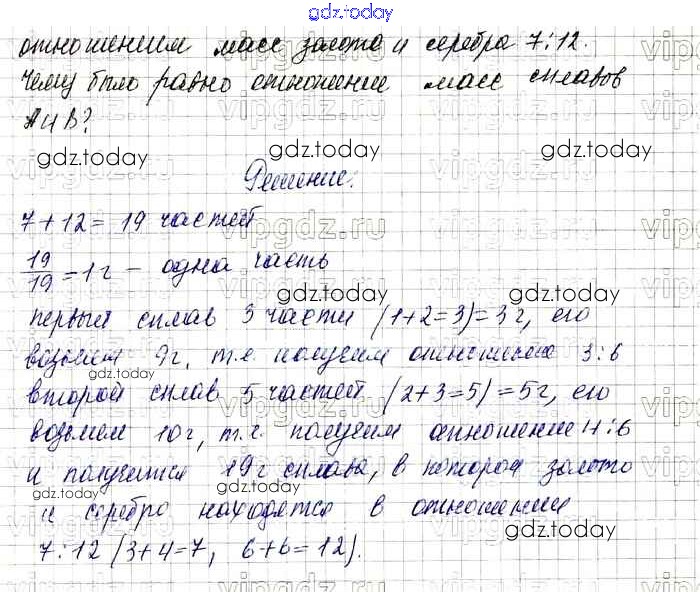 gdz.today
отношением масс золота и серебра 7:12.
Чему было равно отношение масс сплавов
А и В?
gdz.today gdz.today gdz.today
Решение.
7 + 12 = 19 частей
19/19 = 1г - одна часть
gdz.today gdz.today
первый сплав 3 части (1+2=3)=3г, его
возьмем 9г, т.е. получим отношение 3:6
gdz.today
второй сплав 5 частей (2+3=5)=5г, его
возьмем 10г, т.е. получим отношение 4:6
и получится 19г сплава, в котором золото
gdz.today
и серебро находятся в отношении
gdz.today
7:12 (3+4=7, 6+6=12).
vipgdz.ru